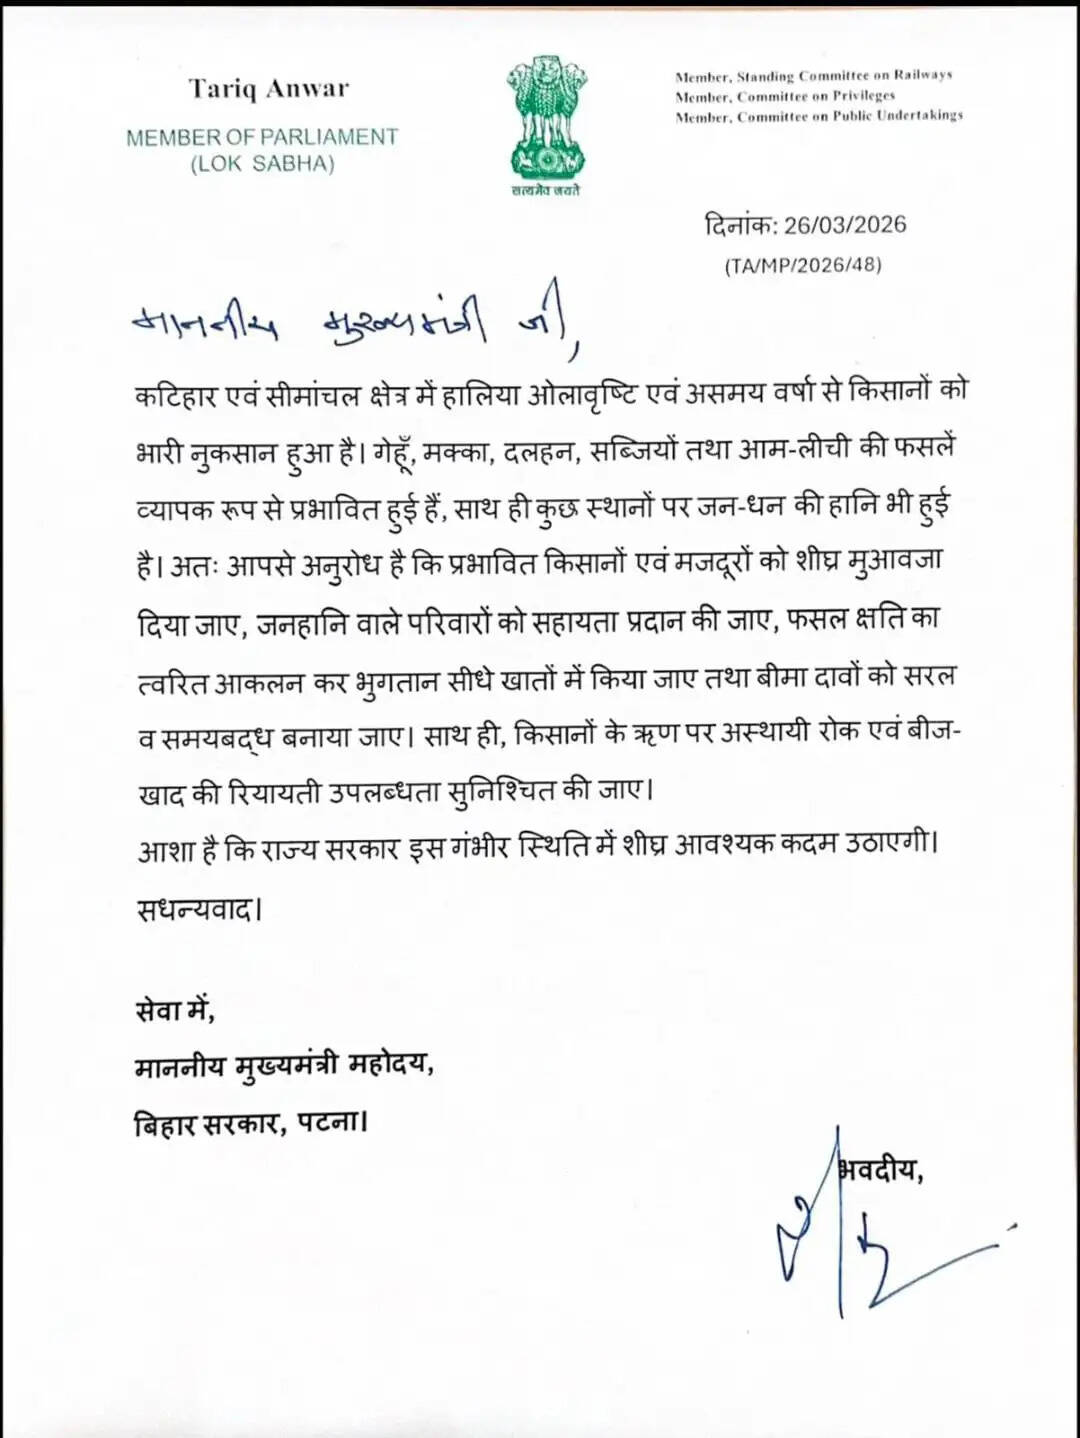 Tariq Anwar
MEMBER OF PARLIAMENT
(LOK SABHA)
सत्यमेव जयते
Member, Standing Committee on Railways
Member, Committee on Privileges
Member, Committee on Public Undertakings
दिनांक: 26/03/2026
(TA/MP/2026/48)
माननीय मुख्यमंत्री जी,
कटिहार एवं सीमांचल क्षेत्र में हालिया ओलावृष्टि एवं असमय वर्षा से किसानों को
भारी नुकसान हुआ है। गेहूँ, मक्का, दलहन, सब्जियों तथा आम-लीची की फसलें
व्यापक रूप से प्रभावित हुई हैं, साथ ही कुछ स्थानों पर जन-धन की हानि भी हुई
है। अतः आपसे अनुरोध है कि प्रभावित किसानों एवं मजदूरों को शीघ्र मुआवजा
दिया जाए, जनहानि वाले परिवारों को सहायता प्रदान की जाए, फसल क्षति का
त्वरित आकलन कर भुगतान सीधे खातों में किया जाए तथा बीमा दावों को सरल
व समयबद्ध बनाया जाए। साथ ही, किसानों के ऋण पर अस्थायी रोक एवं बीज-
खाद की रियायती उपलब्धता सुनिश्चित की जाए।
आशा है कि राज्य सरकार इस गंभीर स्थिति में शीघ्र आवश्यक कदम उठाएगी।
सधन्यवाद।
सेवा में,
माननीय मुख्यमंत्री महोदय,
बिहार सरकार, पटना।
भवदीय,